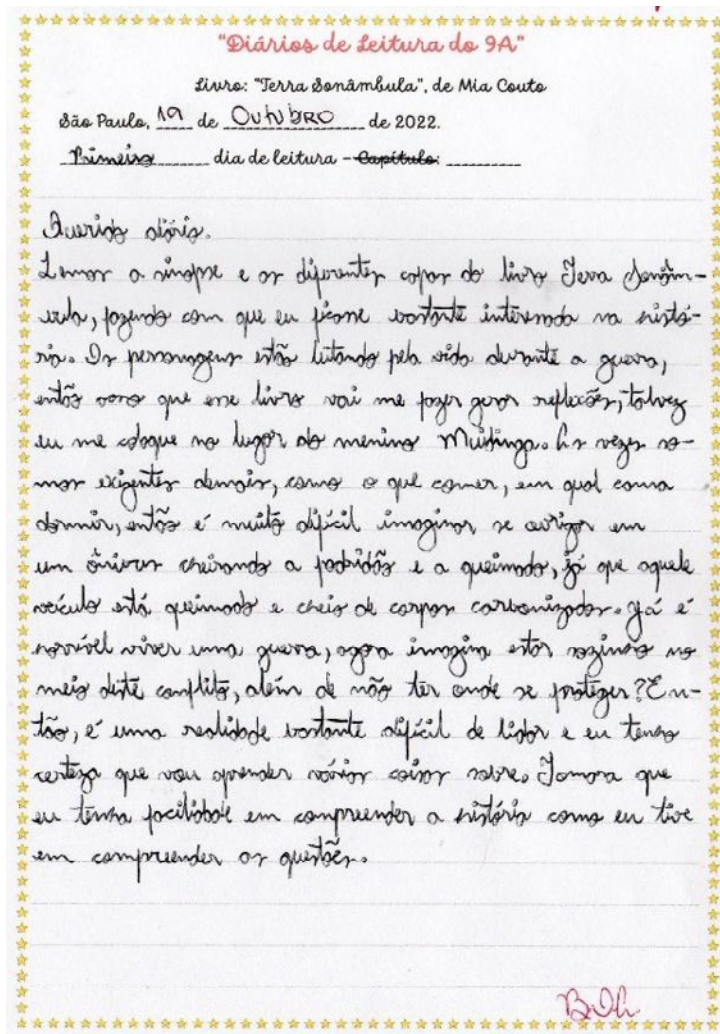 "Diários de Leitura do 9A"
Livro: "Terra Sonâmbula", de Mia Couto
São Paulo, 19 de OUTUBRO de 2022.
Primeiro dia de leitura - Capítulo:
Querido diário.
Lemos a sinopse e as diferentes capas do livro Terra Sonâm-
bula, fazendo com que eu ficasse bastante interessada na histó-
ria. Os personagens estão lutando pela vida durante a guerra,
então acho que esse livro vai me fazer gerar reflexões, talvez
eu me coloque no lugar do menino Muidinga. Às vezes so-
mos exigentes demais, como o que comer, em qual cama
dormir, então é muito difícil imaginar se abrigar em
um ônibus cheirando a podridão e a queimado, já que aquele
veículo está queimado e cheio de corpos carbonizados. Já é
horrível viver uma guerra, agora imagina estar sozinho no
meio deste conflito, além de não ter onde se proteger? En-
tão, é uma realidade bastante difícil de lidar e eu tenho
certeza que vou aprender várias coisas sobre. Tomara que
eu tenha facilidade em compreender a história como eu tive
em compreender as questões.